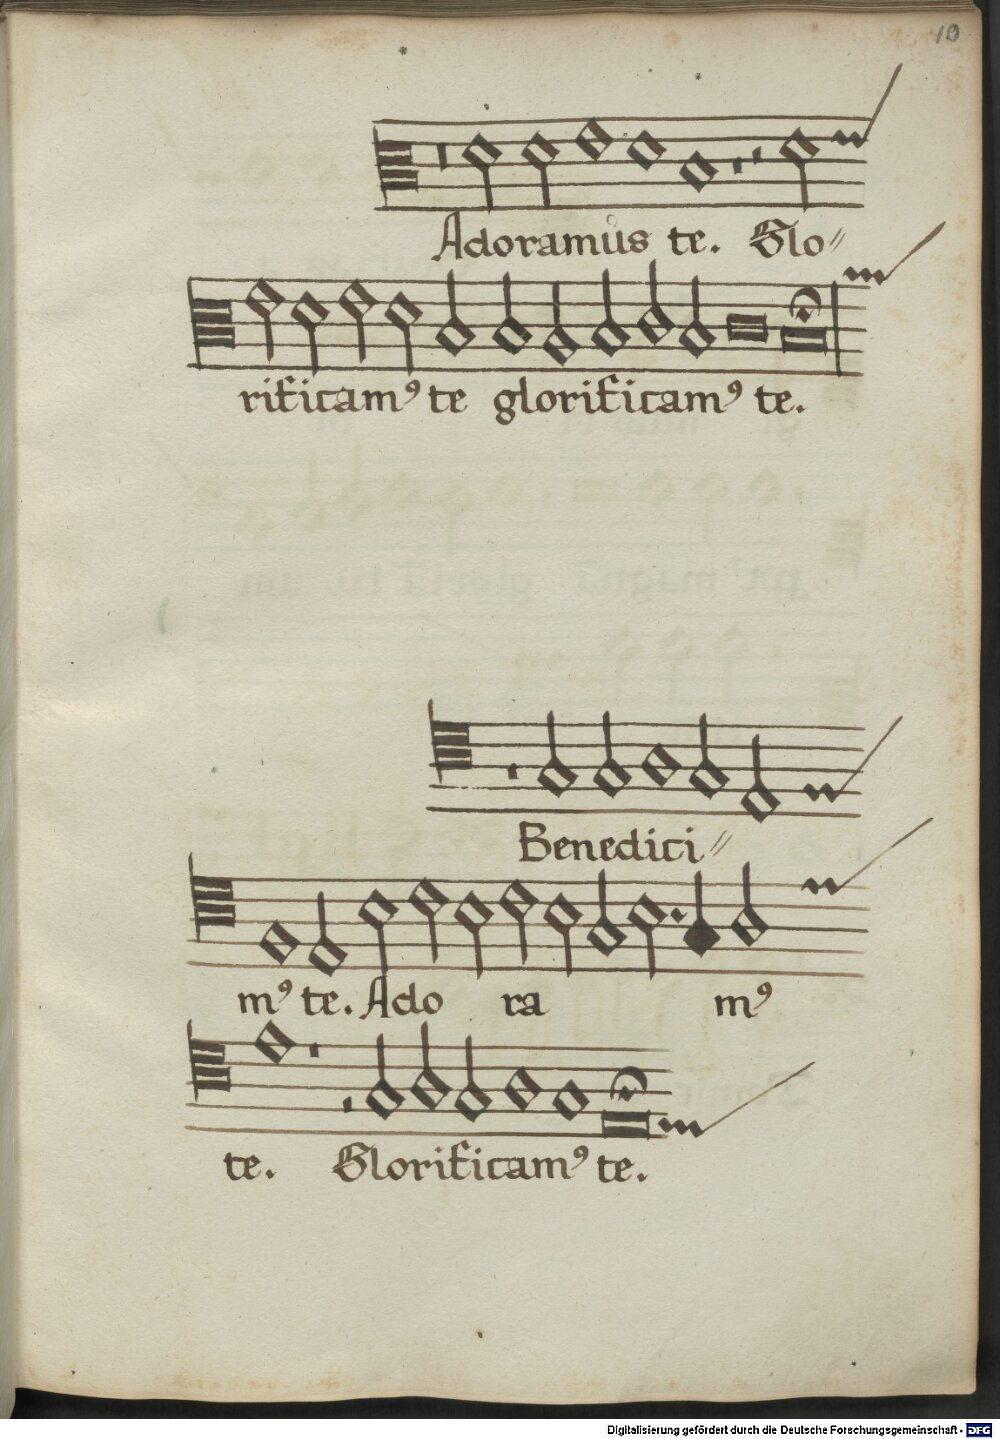 10
Adoramus te. Glo〃
rificamꝰ te glorificamꝰ te.
Benedici〃
mꝰ te. Ado ra mꝰ
te. Glorificamꝰ te.
Digitalisierung gefördert durch die Deutsche Forschungsgemeinschaft - DFG